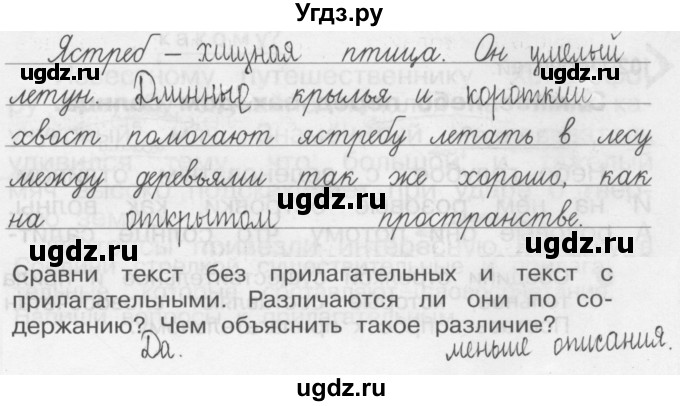 Угдз.ру
Ястреб – хищная птица. Он умелый
летун. Длинные крылья и короткий
хвост помогают ястребу летать в лесу
между деревьями так же хорошо, как
на открытом пространстве.
Сравни текст без прилагательных и текст с
прилагательными. Различаются ли они по со-
держанию? Чем объяснить такое различие?
Да. меньше описания.
ugdz.ru ugdz.ru
ugdz.ru
ugdz.ru ugdz.ru
ugdz.ru